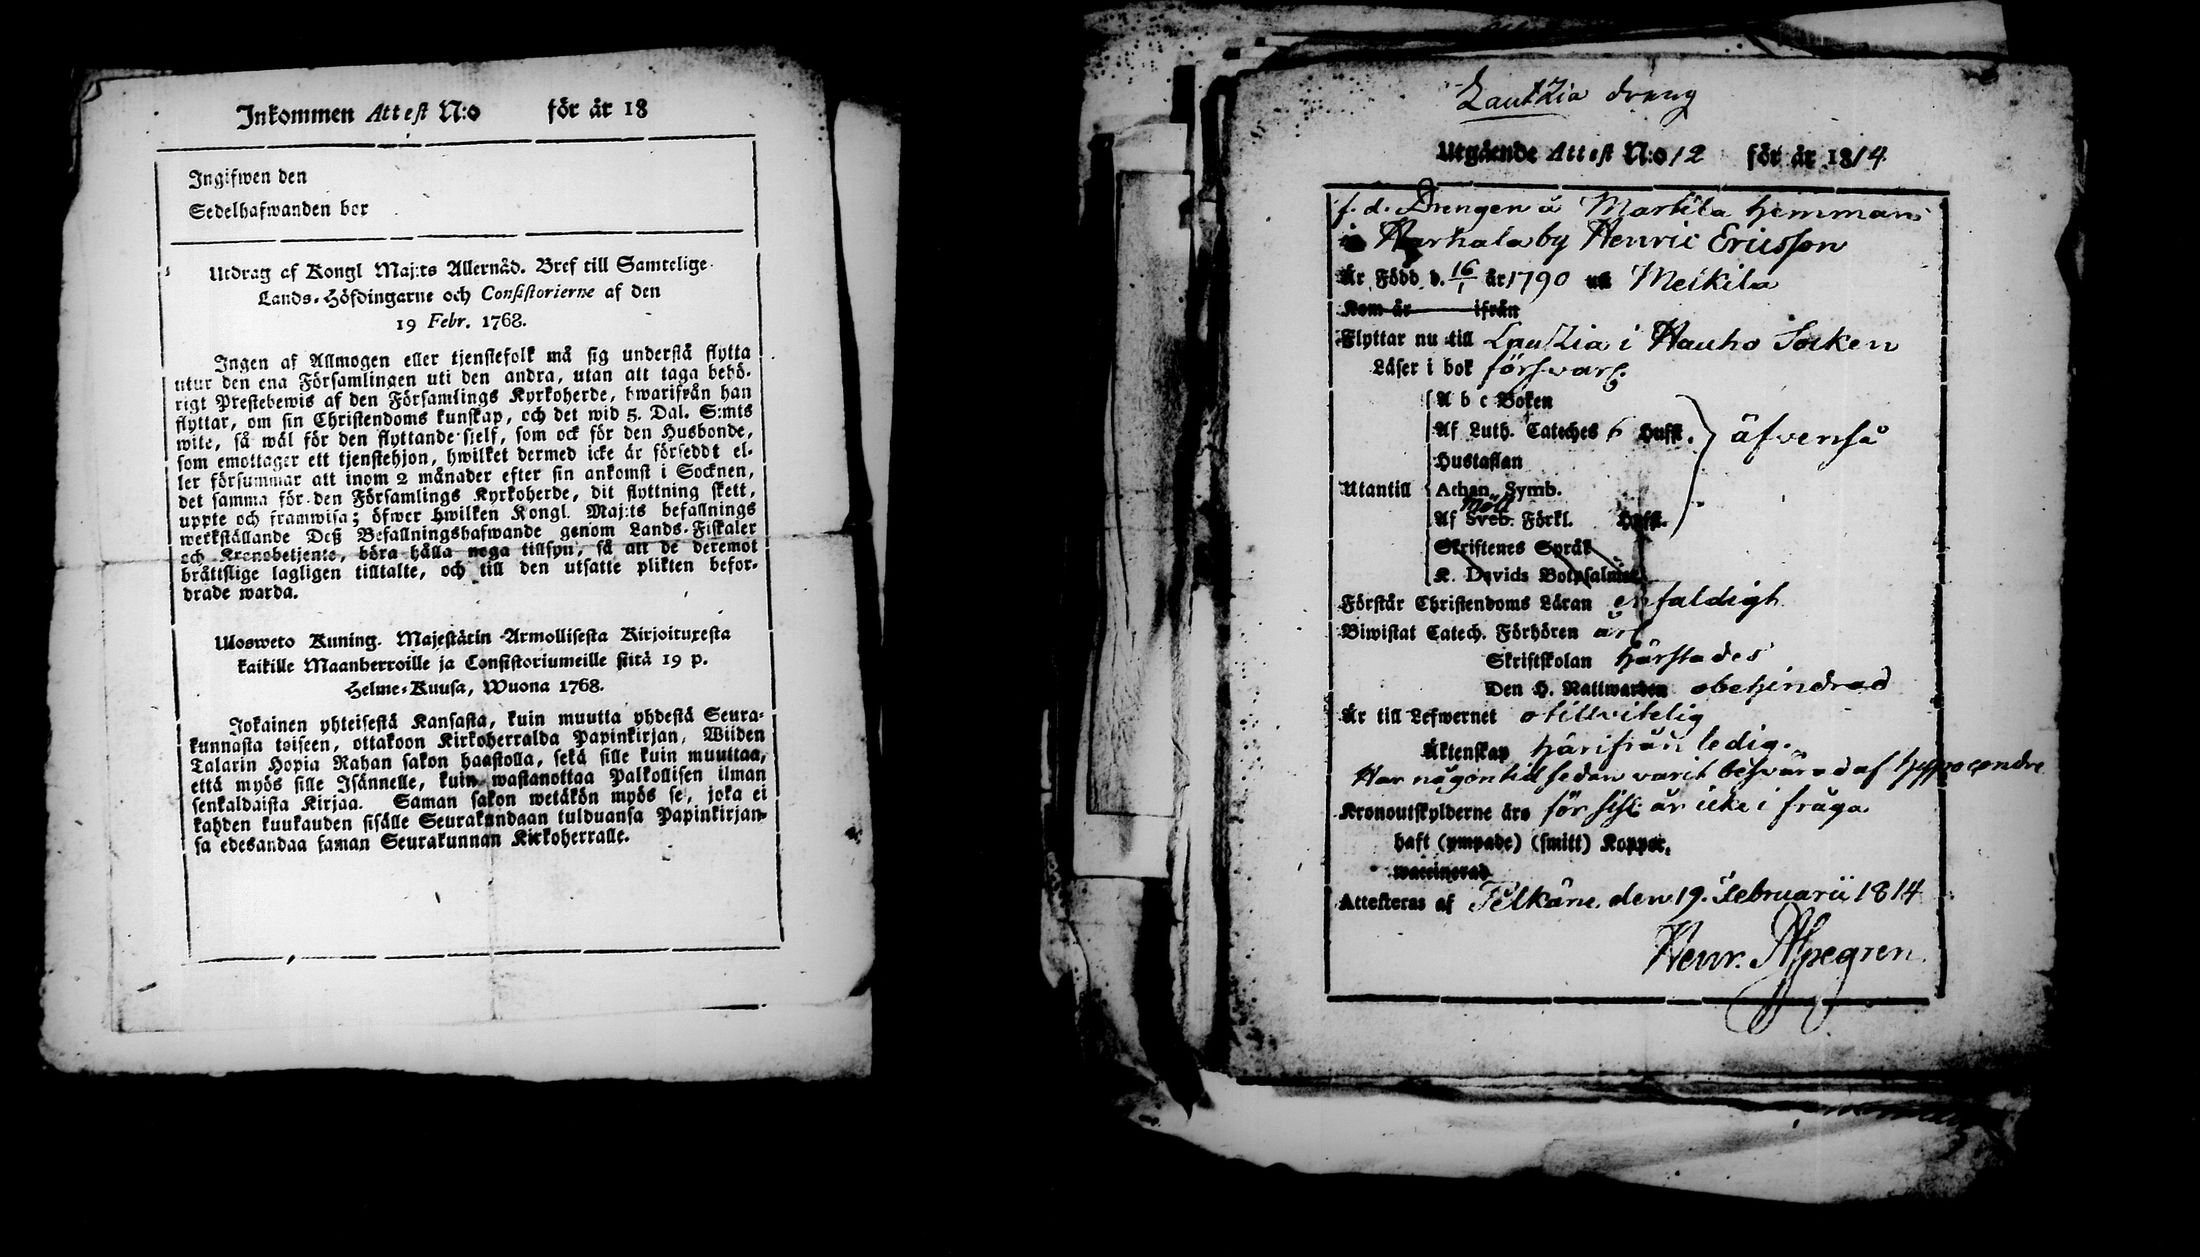 Inkommen Attest N:o för år 18
Ingifwen den
Sedelhafwanden bor
Utdrag af Kongl Maj:ts Allernåd. Bref till Samtelige
Lands-Höfdingarne och Consistorierne af den
19 Febr. 1768.
Ingen af Allmogen eller tjenstefolk må sig understå flytta
utur den ena Församlingen uti den andra, utan att taga behö-
rigt Prestebewis af den Församlings Kyrkoherde, hwarifrån han
flyttar, om sin Christendoms kunskap, och det wid 5. Dal. S:mts
wite, så wäl för den flyttande sjelf, som ock för den Husbonde,
som emottager ett tjenstehjon, hwilket dermed icke är försedt el-
ler försummar att inom 2 månader efter sin ankomst i Socknen,
det samma för den Församlings Kyrkoherde, dit flyttning skett,
uppte och framwisa; öfwer hwilken Kongl. Maj:ts befallnings
werkställande Deß Befallningshafwande genom Lands-Fiskaler
och Kronobetjente, böra hålla noga tillsyn, så att de deremot
bråttslige lagligen tilltalte, och till den utsatte plikten befor-
drade warda.
Ulosweto Kuning. Majestätin Armollisesta Kirjoituxesta
kaikille Maanherroille ja Consistoriumeille siitä 19 p.
Helme-Kuusa, Wuona 1768.
Jokainen yhteisestä Kansasta, kuin muutta yhdestä Seura-
kunnasta toiseen, ottakoon Kirkoherralda Papinkirjan, Wiiden
Talarin Hopia Rahan sakon haastolla, sekä sille kuin muuttaa,
että myös sille Isännelle, kuin wastanottaa Palkollisen ilman
senkaldaista Kirjaa. Saman sakon wetäkön myös se, joka ei
kahden kuukauden sisälle Seurakundaan tulduansa Papinkirjan-
sa edesandaa saman Seurakunnan Kirkoherralle.
Lautzia dräng
Utgående Attest N:o 12 för år 1814
f. d. Drengen å Markila hemman
i Harhala by Henric Ericsson
Är Född d. 16/1 år 1790 uti Meikila
Kom år ifrån
Flyttar nu till Lautzia i Hauho Socken
Läser i bok försvarl.
A b c Boken
Af Luth. Cateches 6 Hufst. äfvenså
Hustaflan
Utantill Athan. Symb.
Möll
Af Sveb. Förkl. Hufst.
Skriftenes Språk
K. Davids Botpsalmer
Förstår Christendoms Läran enfaldigt
Biwistat Catech. Förhören årl
Skriftskolan härstädes
Den H. Nattwarden obehindrad
Är till Lefwernet otillvitelig
Äktenskap härifrån ledig.
Har någon tid sedan varit besvärad af hypocondre
Kronoutskylderne äro för sist år icke i fråga
haft (ympade) (smitt) Koppor.
waccinerad
Attesteras af Pelkäne den 19. Februarii 1814
Henr. Alpegren